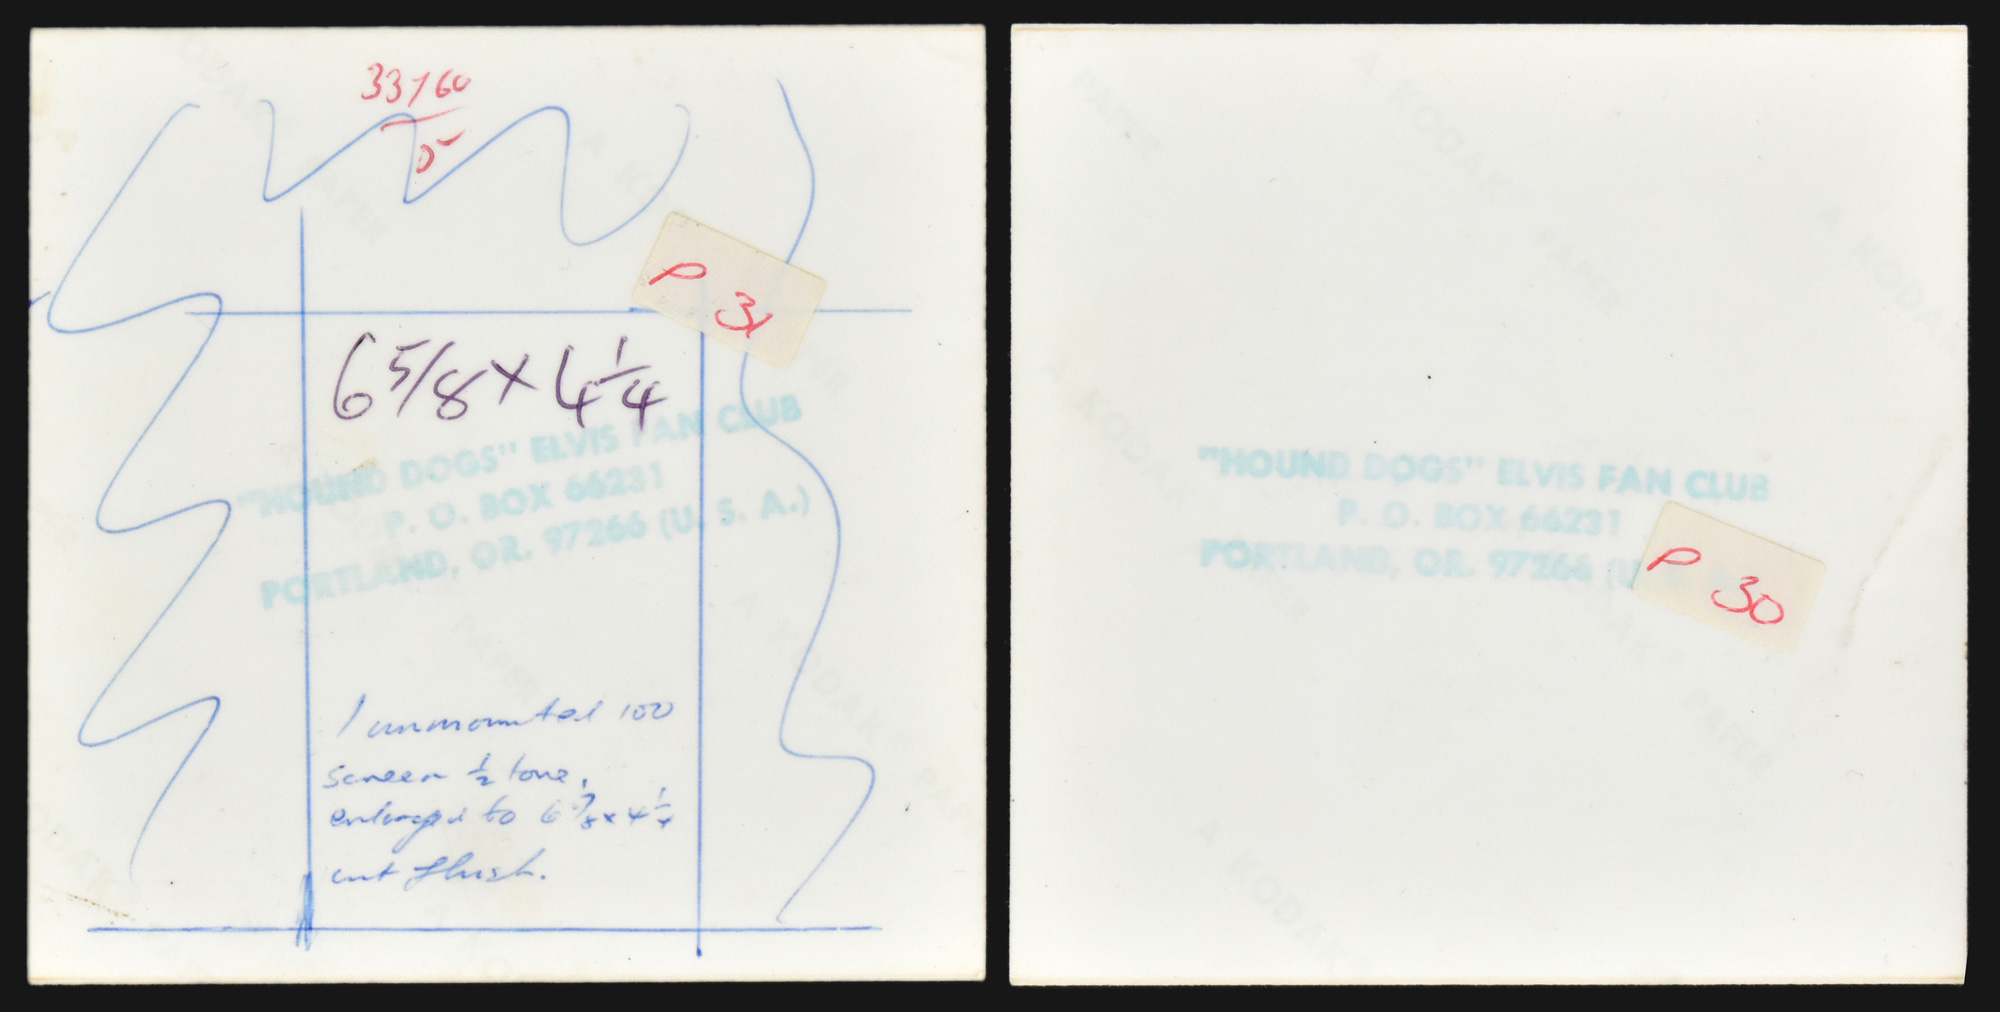 33760
5
P 31
6 5/8 x 4 1/4
"HOUND DOGS" ELVIS FAN CLUB
P. O. BOX 66231
PORTLAND, OR. 97266 (U. S. A.)
1 unmounted 100
screen 1/2 tone,
enlarged to 6 5/8 x 4 1/4
cut flush.
"HOUND DOGS" ELVIS FAN CLUB
P. O. BOX 66231
PORTLAND, OR. 97266 (U.
P 30
A KODAK PAPER